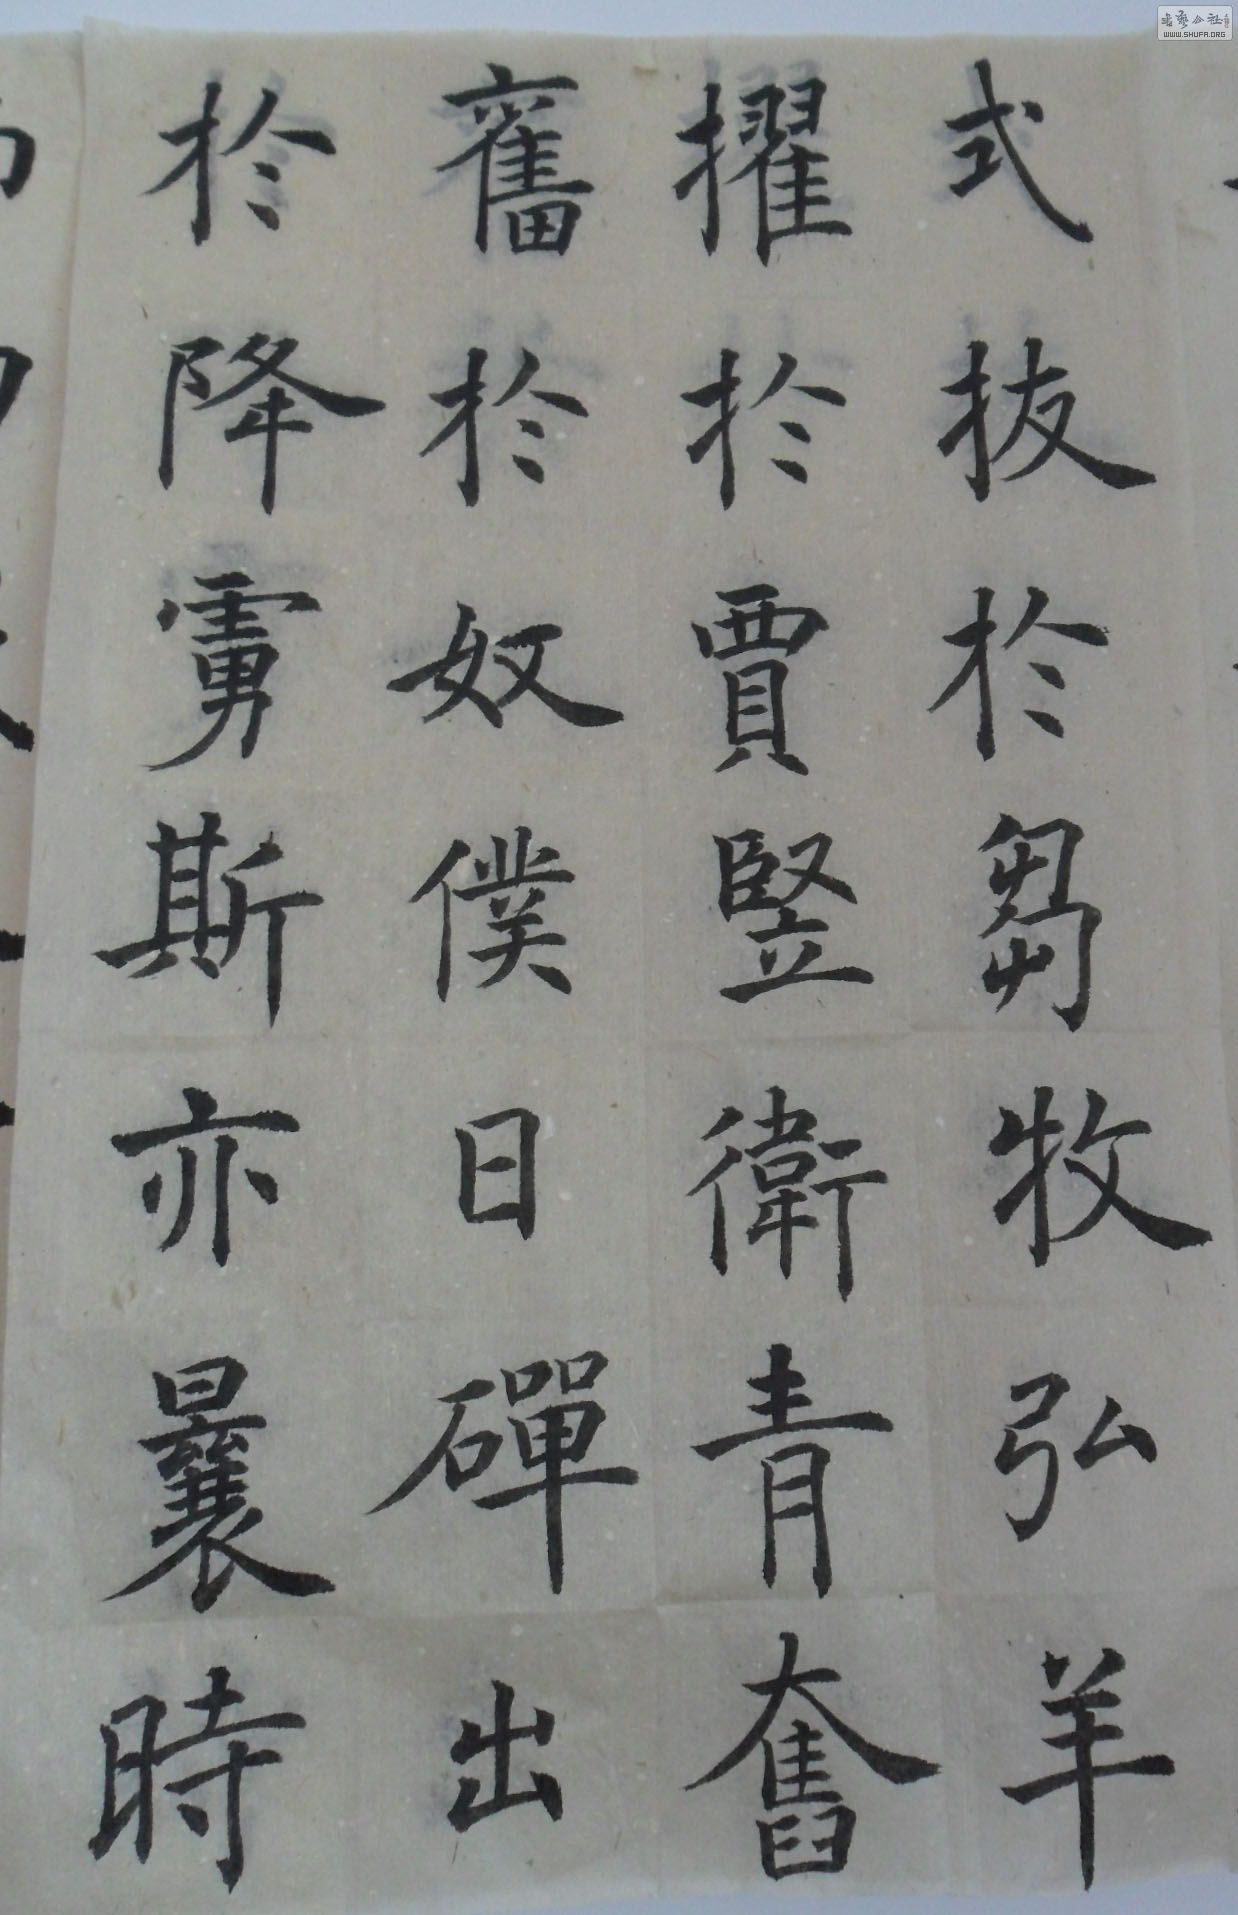 式拔於芻牧弘羊
擢於賈豎衛青奮
奮於奴僕日磾出
於降虜斯亦曩時
WWW.SHUFA.ORG